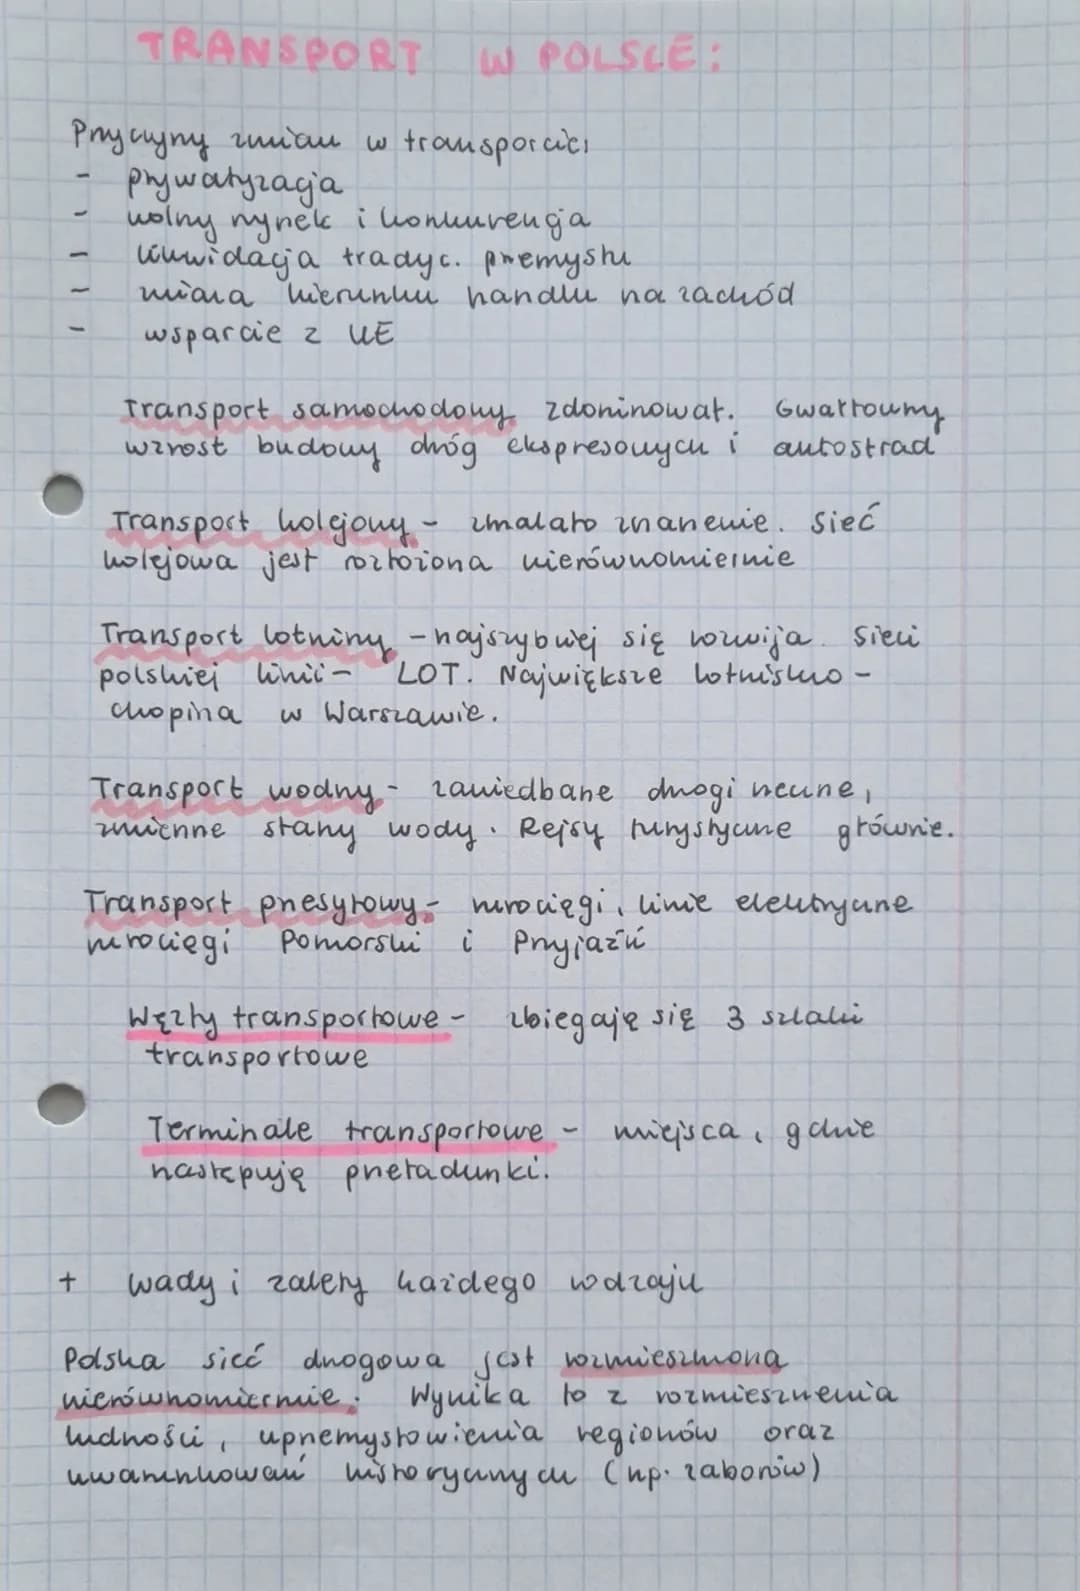 TRANSPORT W POLSCE:
Przyczyny zmian w transporcie:
- prywatyzacja
- wolny rynek i konkurencja
- likwidacja tradyc. przemysłu
- zmiana kierunku handlu na zachód
- wsparcie z UE
Transport samochodowy zdominował. Gwałtowny
wzrost budowy dróg ekspresowych i autostrad
Transport kolejowy - zmalało znaczenie. Sieć
kolejowa jest rozłożona nierównomiernie
Transport lotniczy - najszybciej się rozwija. Sieci
polskiej linii - LOT. Największe lotnisko -
Chopina w Warszawie.
Transport wodny - zaniedbane drogi rzeczne,
zmienne stany wody. Rejsy turystyczne głównie.
Transport przesyłowy - rurociągi, linie elektryczne
rurociągi Pomorski i Przyjaźń
Węzły transportowe - zbiegają się 3 szlaki
transportowe
Terminale transportowe - miejsca, gdzie
następują przeładunki.
+ wady i zalety każdego rodzaju
Polska sieć drogowa jest rozmieszczona
nierównomiernie. Wynika to z rozmieszczenia
ludności, uprzemysłowienia regionów oraz
uwarunkowań historycznych (np. zaborów)